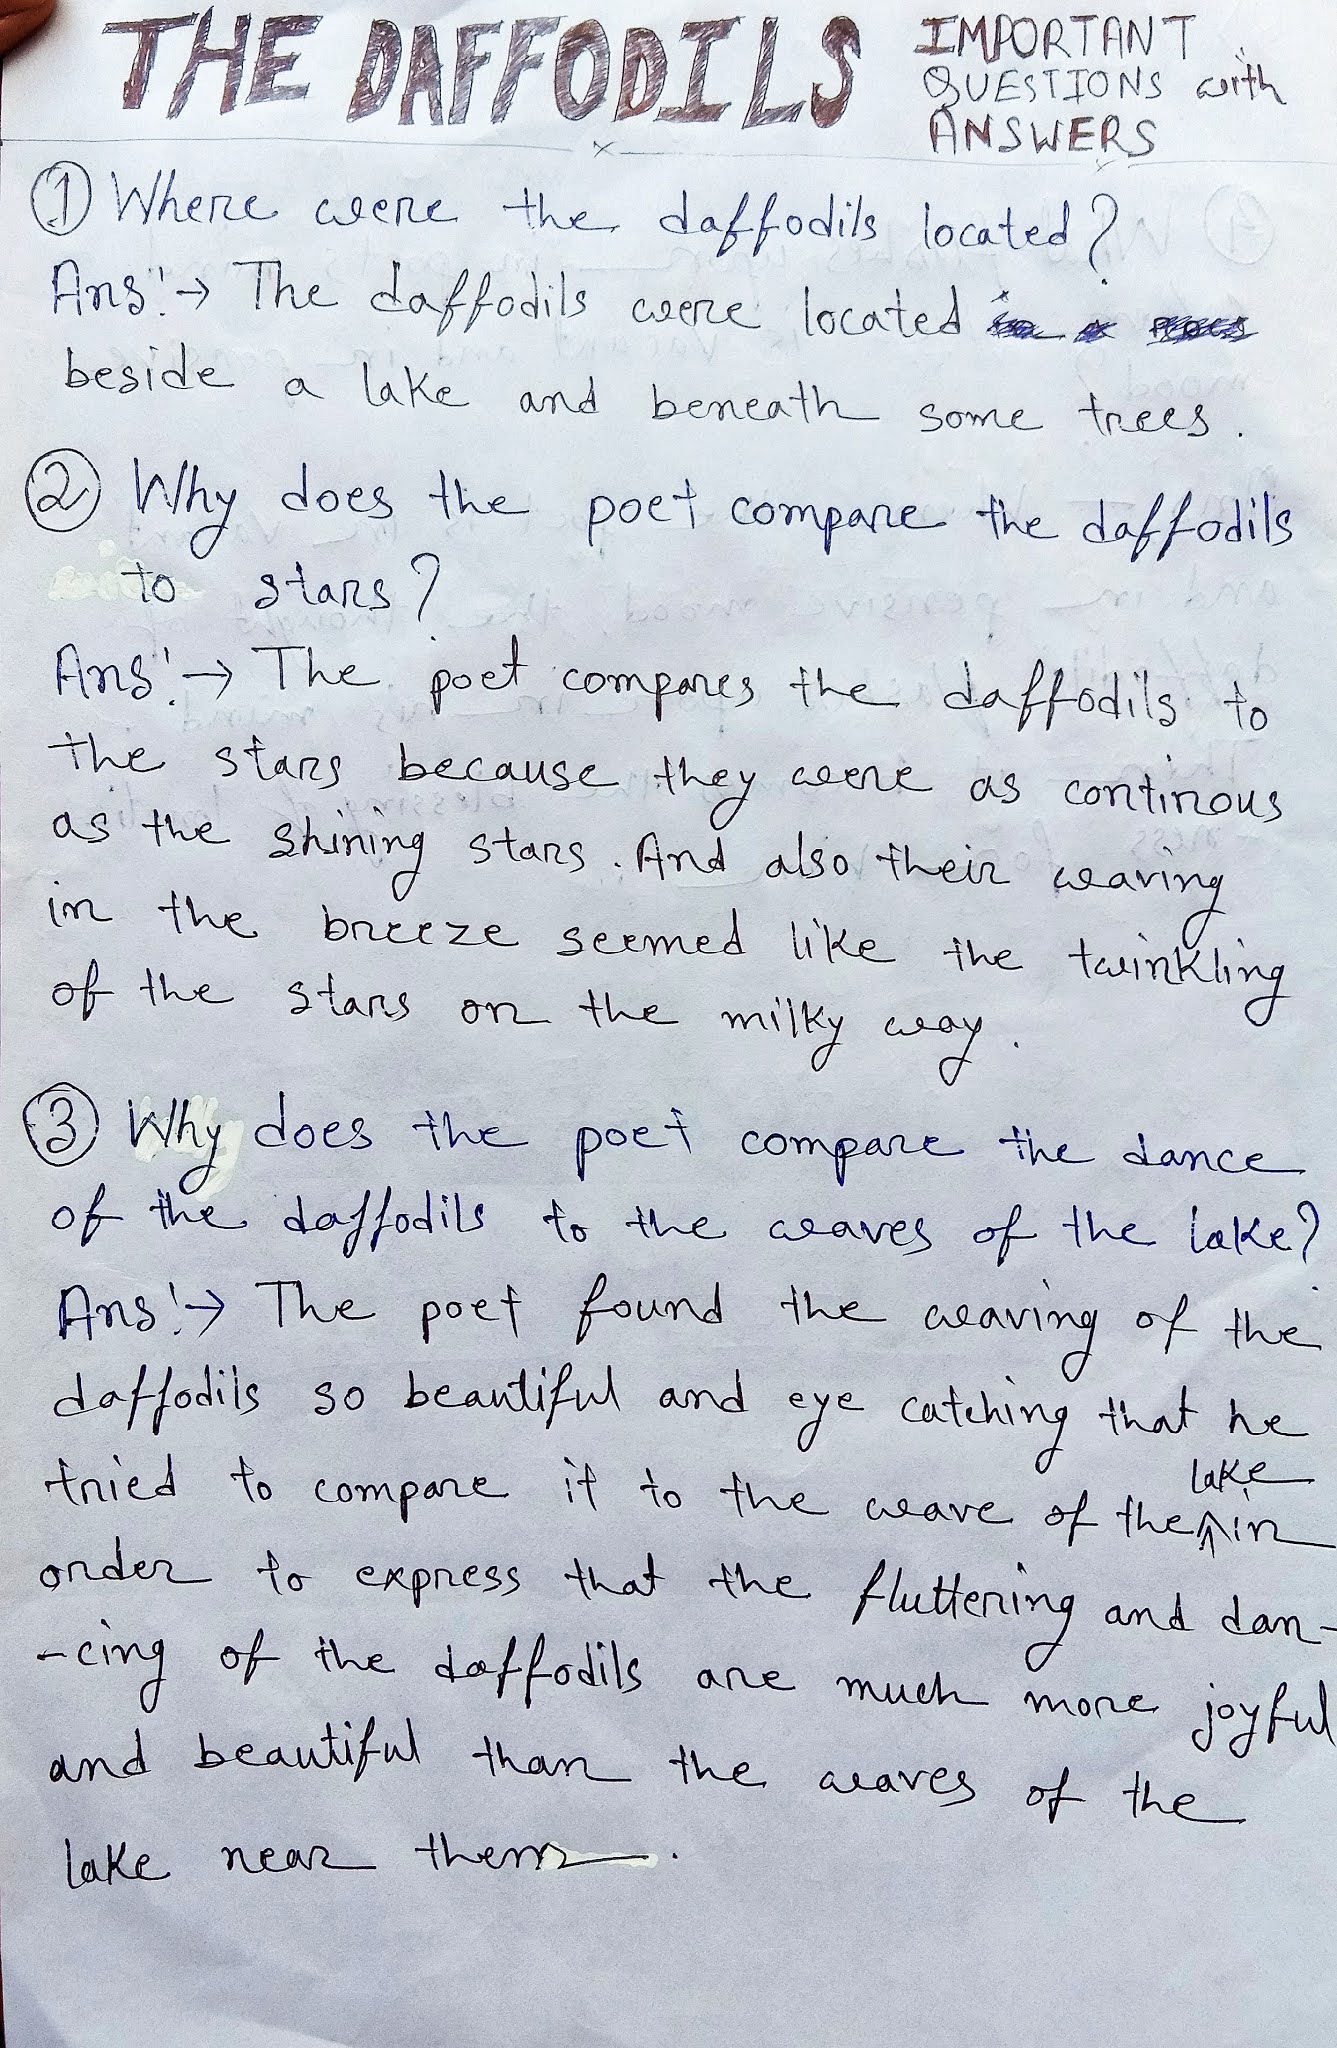 THE DAFFODILS IMPORTANT
QUESTIONS with
ANSWERS
① Where were the daffodils located?
Ans:→ The daffodils were located
beside a lake and beneath some trees.
② Why does the poet compare the daffodils
to stars?
Ans:→ The poet compares the daffodils to
the stars because they were as continous
as the shining stars. And also their waving
in the breeze seemed like the twinkling
of the stars on the milky way.
③ Why does the poet compare the dance
of the daffodils to the waves of the lake?
Ans:→ The poet found the waving of the
daffodils so beautiful and eye catching that he
tried to compare it to the wave of the lake in
order to express that the fluttering and dan-
-cing of the daffodils are much more joyful
and beautiful than the waves of the
lake near them.